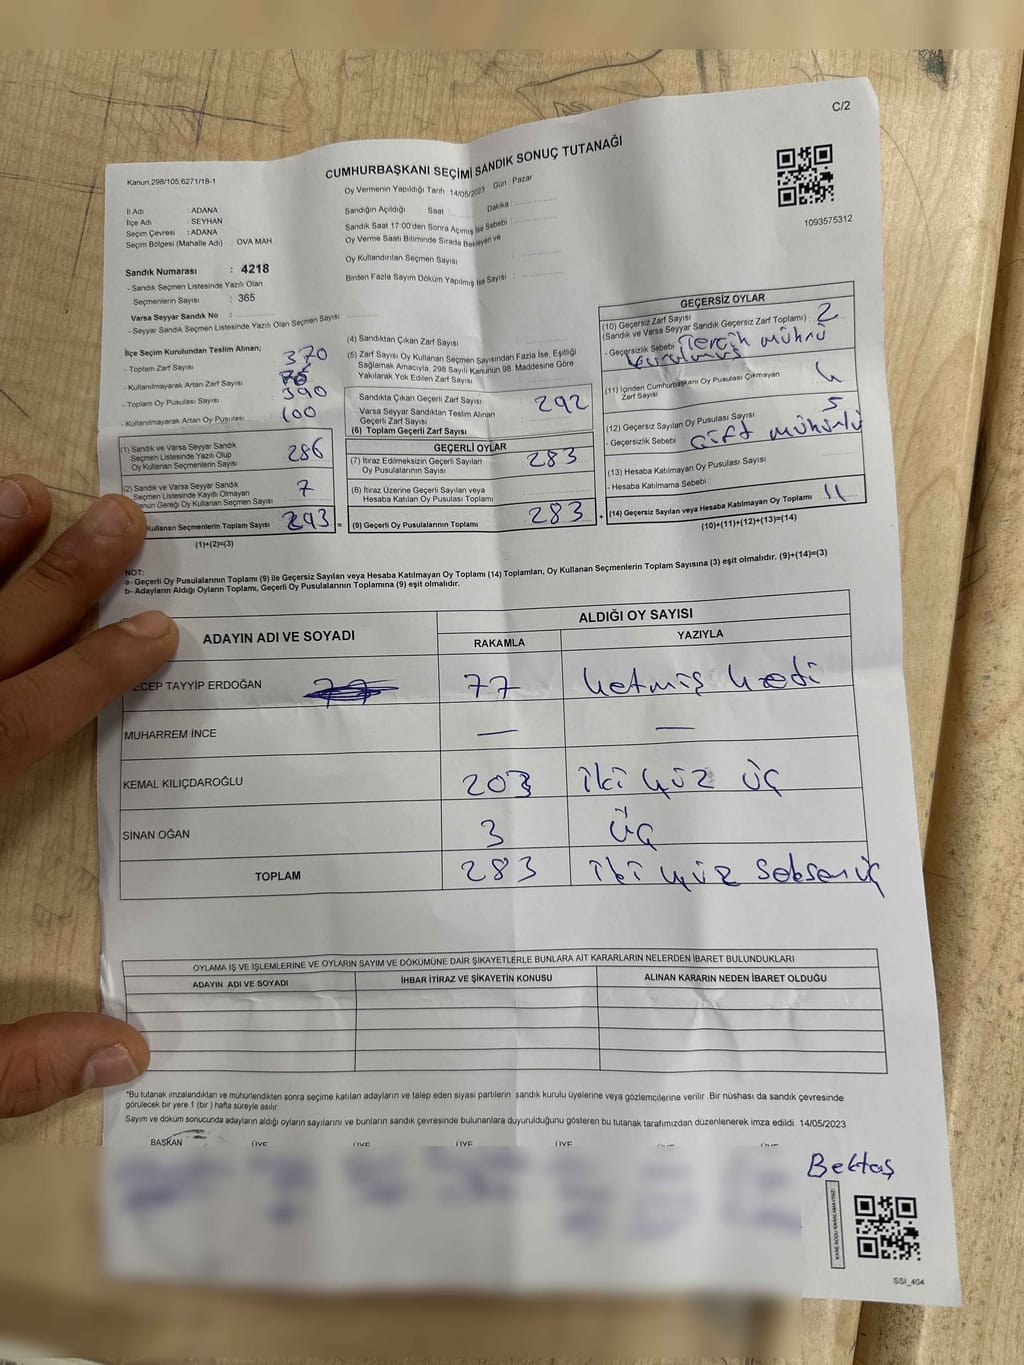 C/2
CUMHURBAŞKANI SEÇİMİ SANDIK SONUÇ TUTANAĞI
Kanun.298/105,6271/18-1
Oy Vermenin Yapıldığı Tarih : 14/05/2023 Gün : Pazar
1093575312
İl Adı : ADANA
İlçe Adı : SEYHAN
Seçim Çevresi : ADANA
Seçim Bölgesi (Mahalle Adı) : OVA MAH.
Sandığın Açıldığı Saat : Dakika :
Sandık Saat 17:00'den Sonra Açılmış İse Sebebi :
Oy Verme Saati Bitiminde Sırada Bekleyen ve
Oy Kullandırılan Seçmen Sayısı
Birden Fazla Sayım Döküm Yapılmış İse Sayısı :
Sandık Numarası : 4218
- Sandık Seçmen Listesinde Yazılı Olan
Seçmenlerin Sayısı : 365
Varsa Seyyar Sandık No :
- Seyyar Sandık Seçmen Listesinde Yazılı Olan Seçmen Sayısı :
İlçe Seçim Kurulundan Teslim Alınan;
- Toplam Zarf Sayısı 370
- Kullanılmayarak Artan Zarf Sayısı
- Toplam Oy Pusulası Sayısı 390
- Kullanılmayarak Artan Oy Pusulası 100
(1) Sandık ve Varsa Seyyar Sandık
Seçmen Listesinde Yazılı Olup
Oy Kullanan Seçmenlerin Sayısı 286
(2) Sandık ve Varsa Seyyar Sandık
Seçmen Listesinde Kayıtlı Olmayan
Kanun Gereği Oy Kullanan Seçmen Sayısı 7
Kullanan Seçmenlerin Toplam Sayısı 293 =
(1)+(2)=(3)
(4) Sandıktan Çıkan Zarf Sayısı
(5) Zarf Sayısı Oy Kullanan Seçmen Sayısından Fazla İse, Eşitliği
Sağlamak Amacıyla, 298 Sayılı Kanunun 98. Maddesine Göre
Yakılarak Yok Edilen Zarf Sayısı
Sandıkta Çıkan Geçerli Zarf Sayısı 292
Varsa Seyyar Sandıktan Teslim Alınan
Geçerli Zarf Sayısı
(6) Toplam Geçerli Zarf Sayısı
GEÇERLİ OYLAR
(7) İtiraz Edilmeksizin Geçerli Sayılan
Oy Pusulalarının Sayısı 283
(8) İtiraz Üzerine Geçerli Sayılan veya
Hesaba Katılan Oy Pusulası Toplamı
(9) Geçerli Oy Pusulalarının Toplamı 283 +
GEÇERSİZ OYLAR
(10) Geçersiz Zarf Sayısı
(Sandık ve Varsa Seyyar Sandık Geçersiz Zarf Toplamı) : 2
- Geçersizlik Sebebi Tercih mührü
vurulmuş
(11) İçinden Cumhurbaşkanı Oy Pusulası Çıkmayan
Zarf Sayısı 4
(12) Geçersiz Sayılan Oy Pusulası Sayısı 5
- Geçersizlik Sebebi Çift mühürlü
(13) Hesaba Katılmayan Oy Pusulası Sayısı
- Hesaba Katılmama Sebebi :
(14) Geçersiz Sayılan veya Hesaba Katılmayan Oy Toplamı 11
(10)+(11)+(12)+(13)=(14)
NOT:
a- Geçerli Oy Pusulalarının Toplamı (9) ile Geçersiz Sayılan veya Hesaba Katılmayan Oy Toplamı (14) Toplamları, Oy Kullanan Seçmenlerin Toplam Sayısına (3) eşit olmalıdır. (9)+(14)=(3)
b- Adayların Aldığı Oyların Toplamı, Geçerli Oy Pusulalarının Toplamına (9) eşit olmalıdır.
ADAYIN ADI VE SOYADI ALDIĞI OY SAYISI
RAKAMLA YAZIYLA
ECEP TAYYİP ERDOĞAN 77 yetmiş yedi
MUHARREM İNCE — —
KEMAL KILIÇDAROĞLU 203 iki yüz üç
SİNAN OĞAN 3 üç
TOPLAM 283 iki yüz seksen üç
OYLAMA İŞ VE İŞLEMLERİNE VE OYLARIN SAYIM VE DÖKÜMÜNE DAİR ŞİKAYETLERLE BUNLARA AİT KARARLARIN NELERDEN İBARET BULUNDUKLARI
ADAYIN ADI VE SOYADI İHBAR İTİRAZ VE ŞİKAYETİN KONUSU ALINAN KARARIN NEDEN İBARET OLDUĞU
*Bu tutanak imzalandıktan ve mühürlendikten sonra seçime katılan adayların ve talep eden siyasi partilerin sandık kurulu üyelerine veya gözlemcilerine verilir. Bir nüshası da sandık çevresinde
görülecek bir yere 1 (bir) hafta süreyle asılır.
Sayım ve döküm sonucunda adayların aldığı oyların sayılarını ve bunların sandık çevresinde bulunanlara duyurulduğunu gösteren bu tutanak tarafımızdan düzenlenerek imza edildi. 14/05/2023
BAŞKAN ÜYE ÜYE ÜYE ÜYE ÜYE
Bektaş
KARE KODU KARALAMAYINIZ!
SSI_404